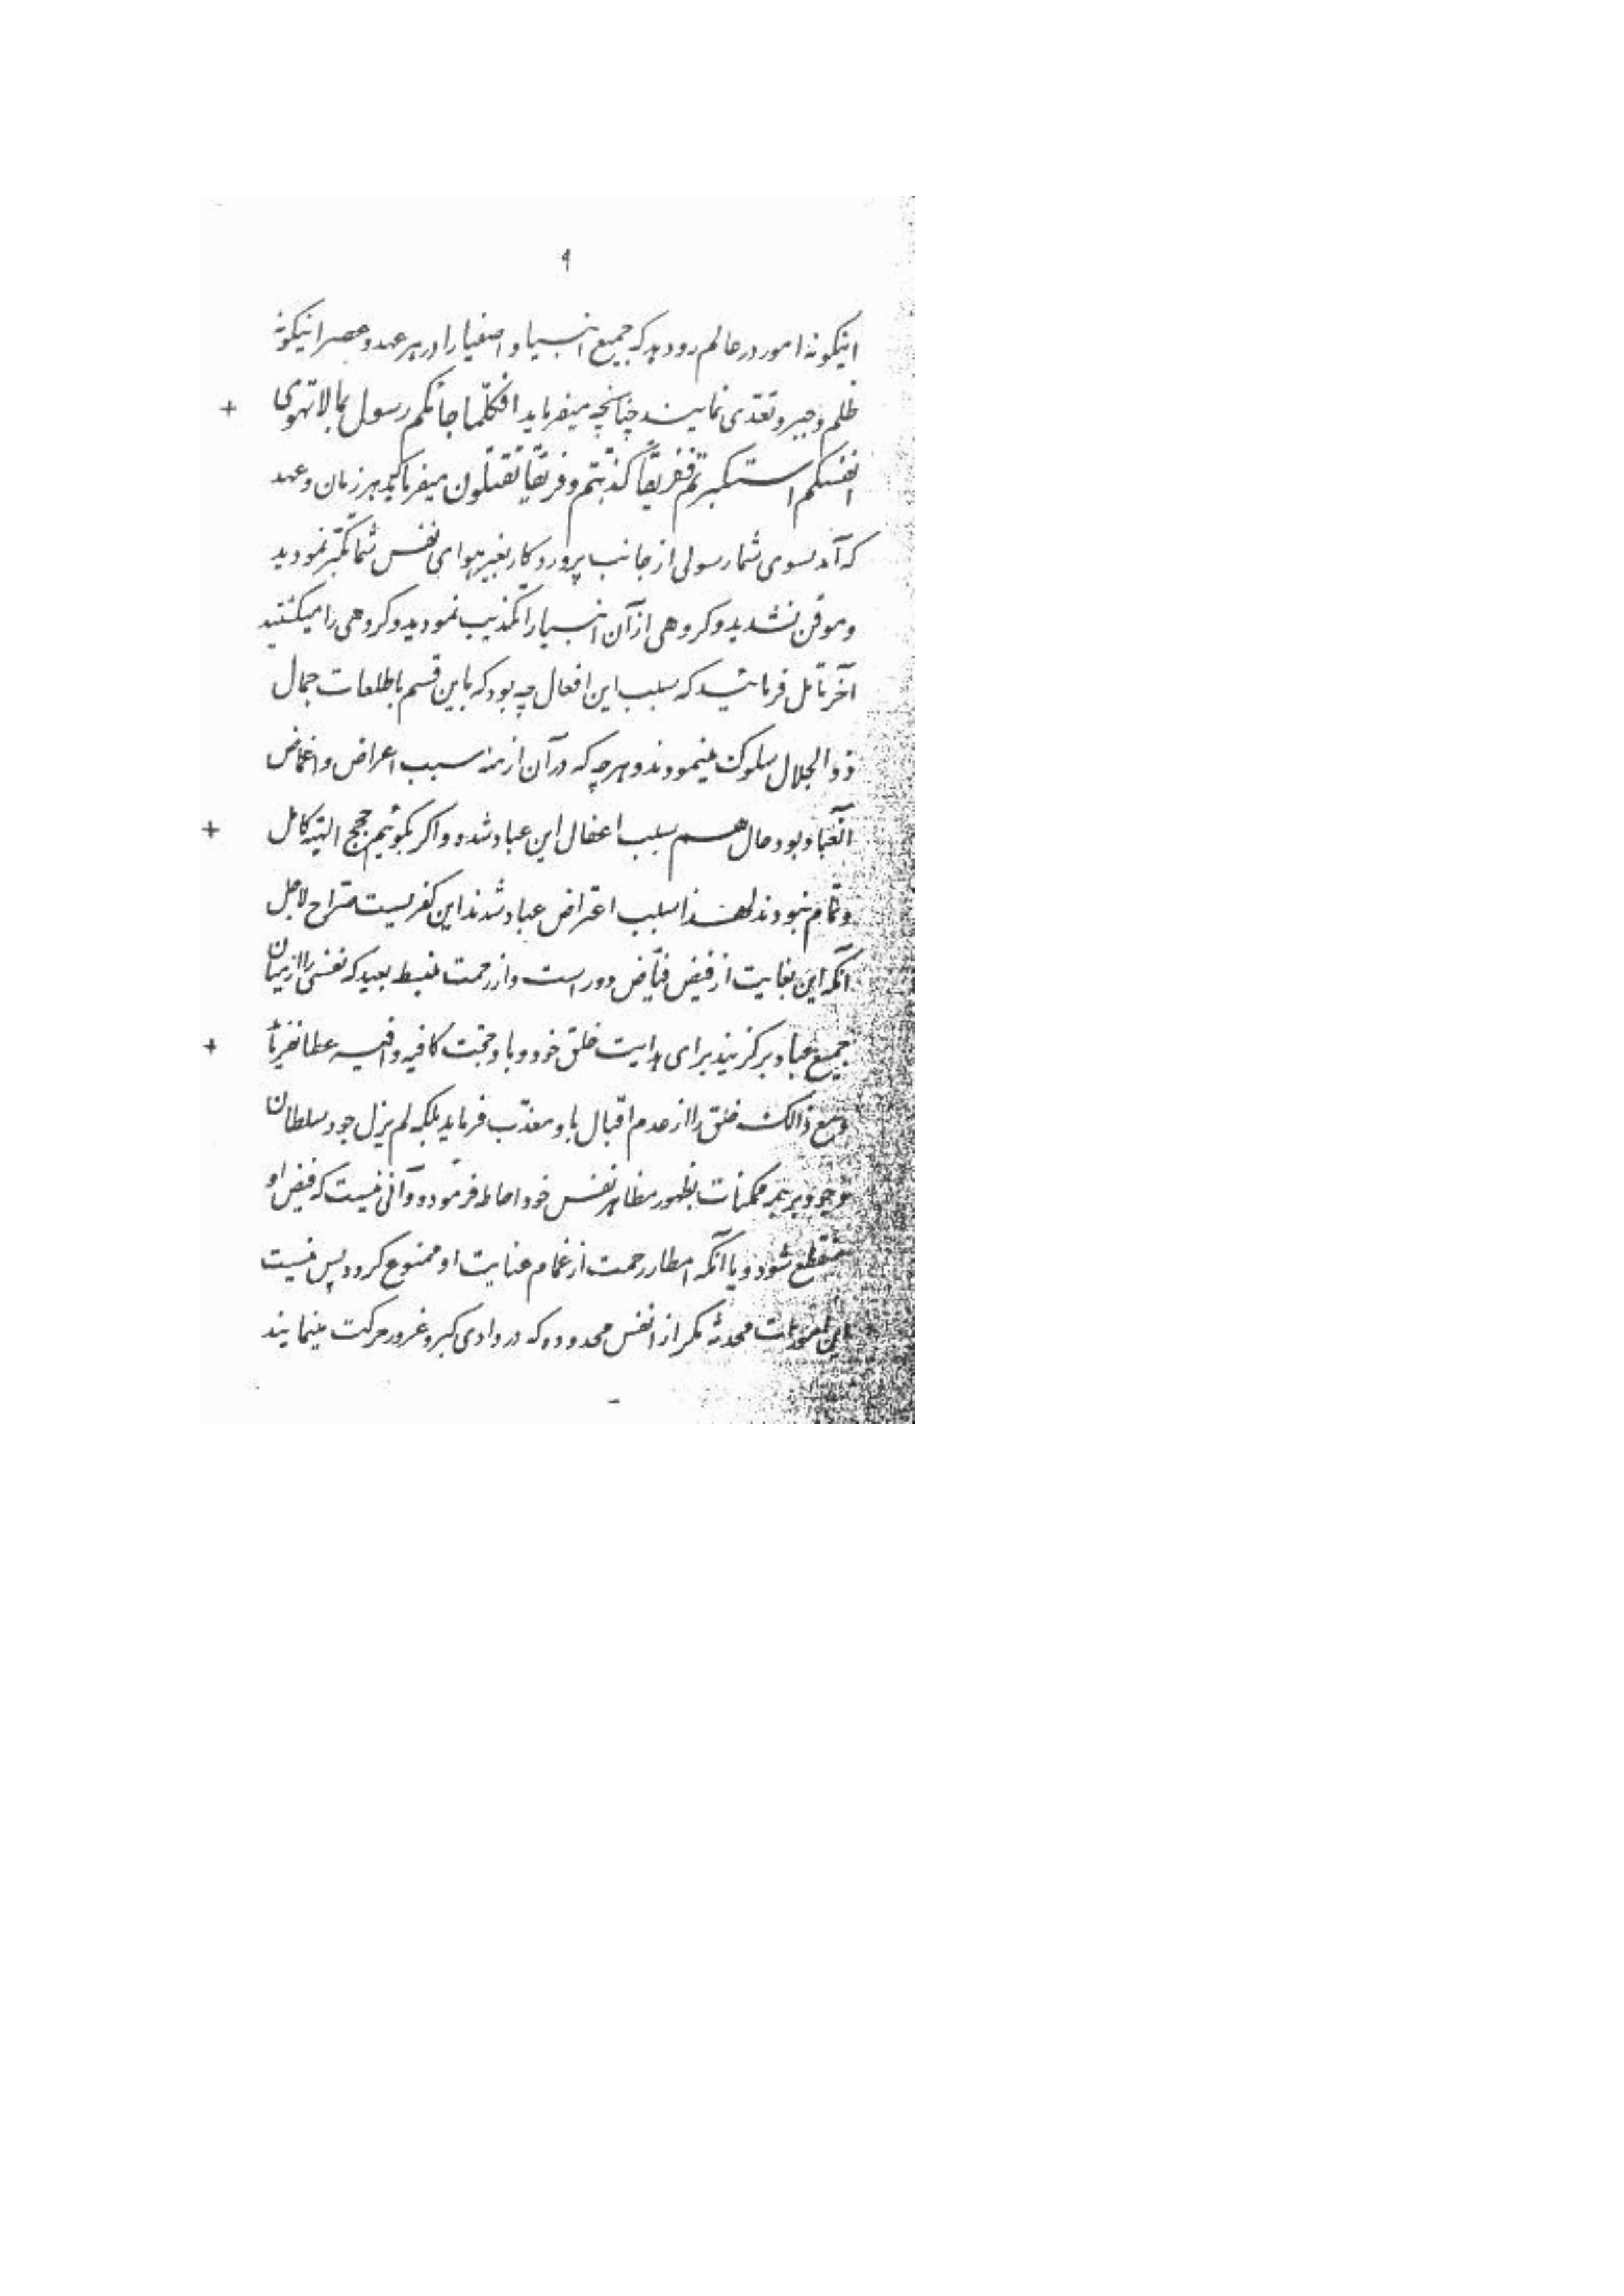 ۹
اینگونه امور در عالم رو دهد که جمیع انبیا و اصفیا را در هر عهد و عصر اینگونه
ظلم و جبر و تعدّی نمایند چنانچه میفرماید افکلّما جائکم رسول بما لا تهوی
+
انفسکم استکبرتم ففریقاً کذّبتم و فریقاً تقتلون میفرماید هر زمان و عهد
که آمد بسوی شما رسولی از جانب پروردکار بغیر هوای نفس شما تکبّر نمودید
و موقن نشدید و کروهی از آن انبیا را تکذیب نمودید و کروهی را میکشتید
آخر تأمل فرمائید که سبب این افعال چه بود که باین قسم با طلعات جمال
ذو الجلال سلوک مینمودند و هر چه که در آن ازمنه سبب اعراض و اغماض
آنعباد بود حال هم سبب اغفال این عباد شده و اکر بکوئیم حجج الهیّه کامل
+
و تمام نبودند لهذا سبب اعتراض عباد شدند این کفریست صراح لاجل
آنکه این بغایت از فیض فیّاض دور است و از رحمت منبسط بعید که نفسی را از میان
جمیع عباد برکزیند برای هدایت خلق خود و باو حجّت کافیه وافیه عطا نفرماید
+
و مع ذالک خلق را از عدم اقبال باو معذّب فرماید بلکه لم یزل جود سلطان
وجود بر همه ممکنات بظهور مظاهر نفس خود احاطه فرموده و آنی نیست که فیض او
منقطع شود و یا آنکه امطار رحمت از غمام عنایت او ممنوع کردد پس نیست
این امورات محدثه مکر از انفس محدوده که در وادی کبر و غرور حرکت مینمایند